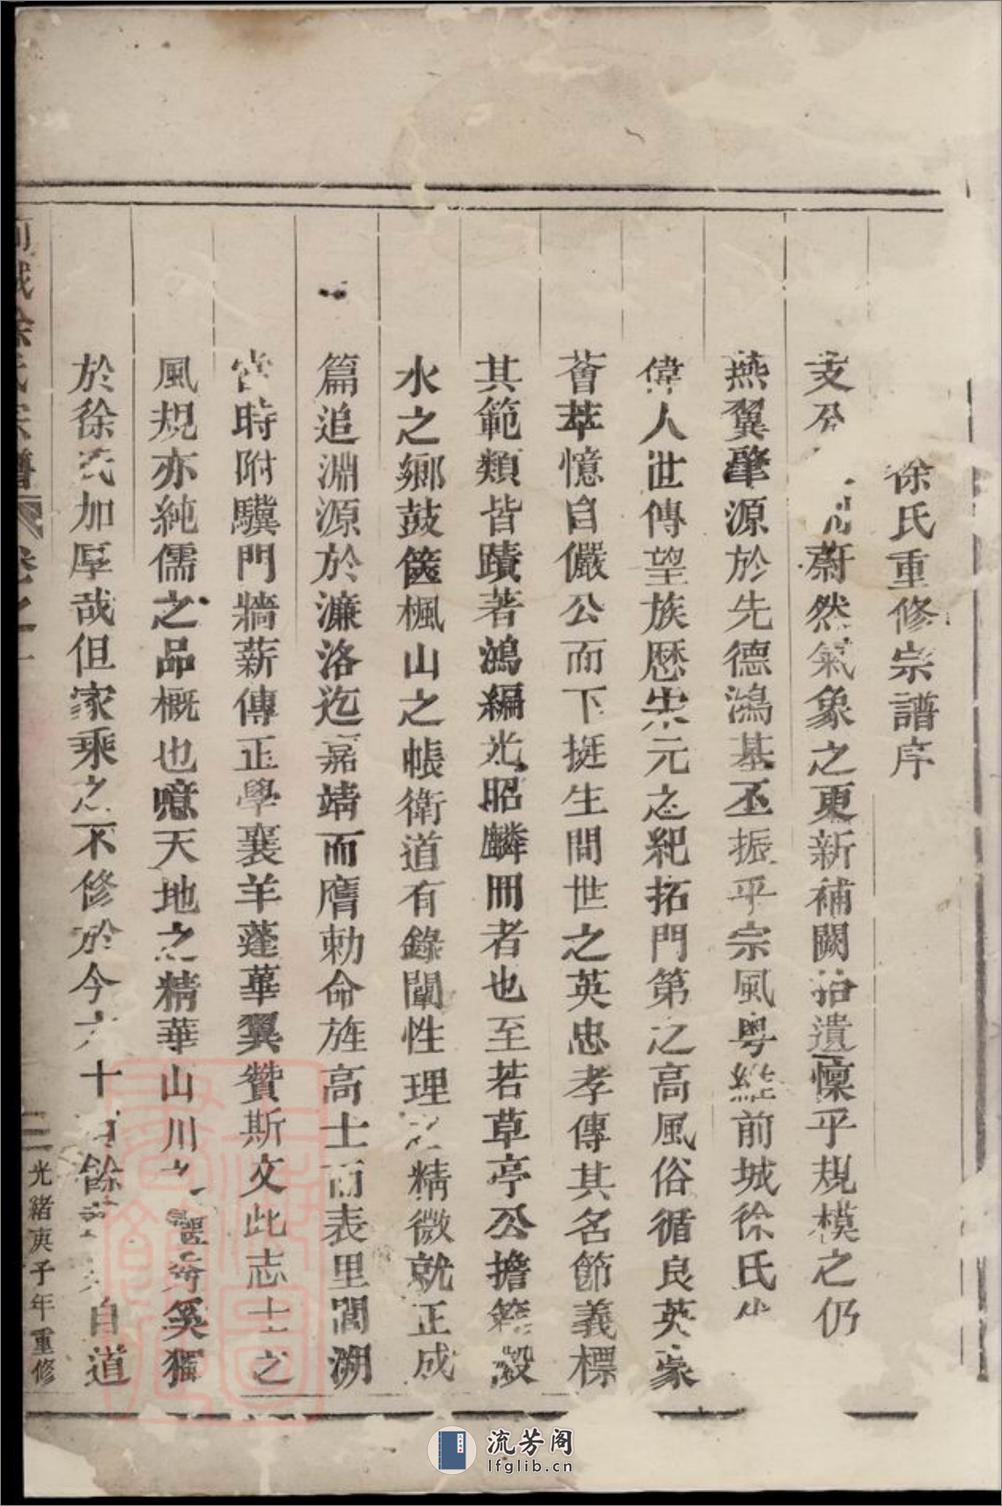 徐氏重修宗譜序
支分 蔚然氣象之更新補闕拾遺懍乎規模之仍
燕翼肇源於先德鴻基丕振乎宗風粤維前城徐氏
偉人世傳望族歷宋元之紀拓門第之高風俗循良英豪
薈萃憶自儼公而下挺生間世之英忠孝傳其名節義標
其範類皆蹟著鴻編光昭麟冊者也至若草亭公擔簦瀔
水之鄉鼓篋楓山之帳衛道有錄闡性理之精微就正成
篇追淵源於濂洛迄嘉靖而膺勅命旌高士而表里閭溯
當時附驥門牆薪傳正學襄羊蓬蓽翼贊斯文此志士之
風規亦純儒之品概也噫天地之精華山川之 奇奚獨
於徐氏加厚哉但家乘之不修於今六十 餘 自道
前城徐氏宗譜 卷之一
二 光緒庚子年重修
流芳阁
lfglib.cn